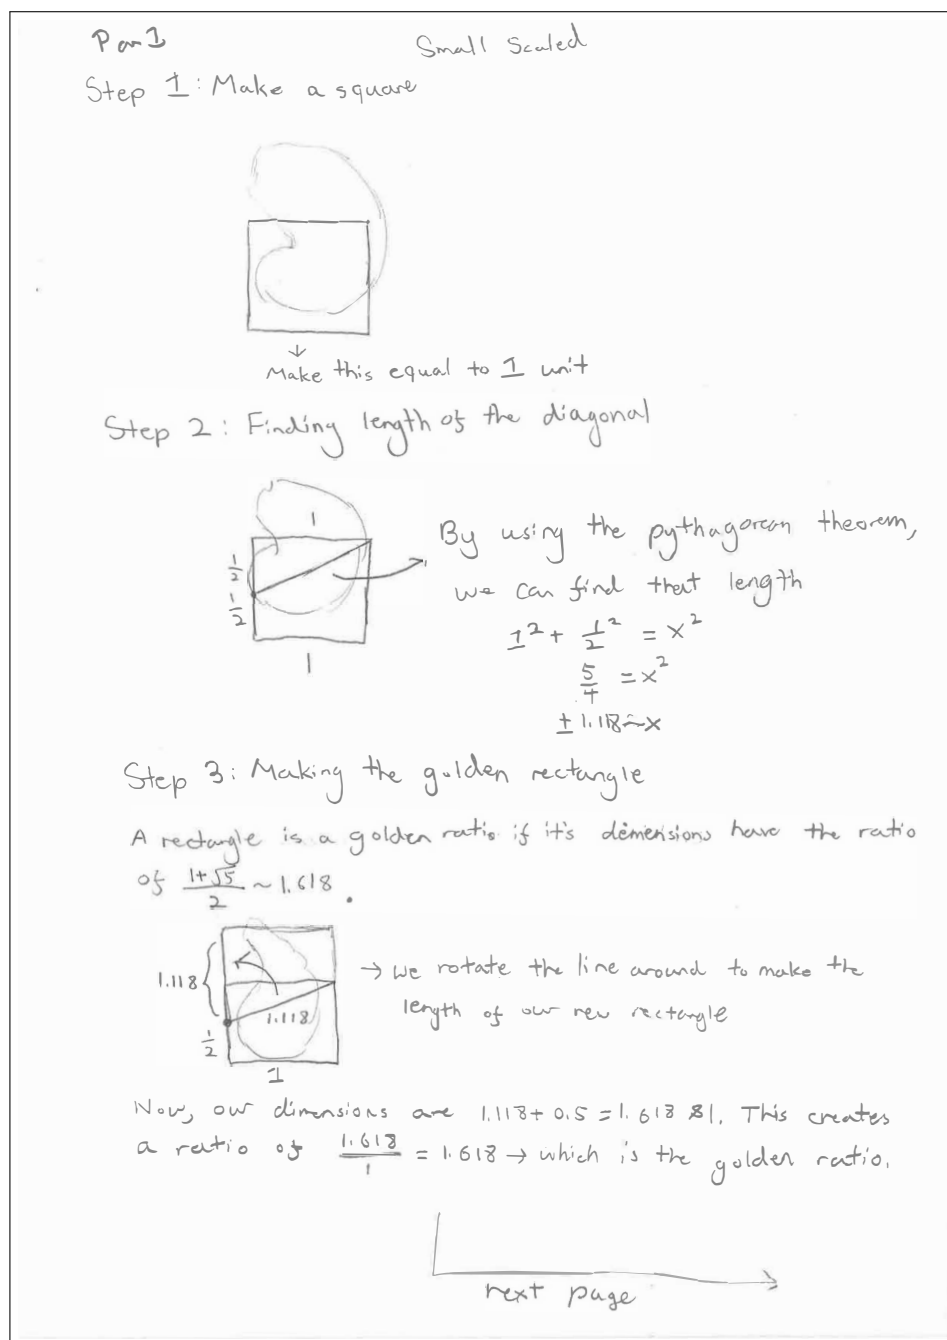 Small Scaled
Step 1: Make a square
↓
Make this equal to 1 unit
Step 2: Finding length of the diagonal
1
1/2
1/2
1
By using the pythagorean theorem,
we can find that length
1² + 1/2² = x²
5/4 = x²
± 1.118 ~ x
Step 3: Making the golden rectangle
A rectangle is a golden ratio if it's demensions have the ratio
of (1+√5)/2 ~ 1.618.
1.118
1.118
1/2
1
→ We rotate the line around to make the
length of our new rectangle
Now, our dimensions are 1.118 + 0.5 = 1.618 & 1. This creates
a ratio of 1.618/1 = 1.618 → which is the golden ratio.
next page